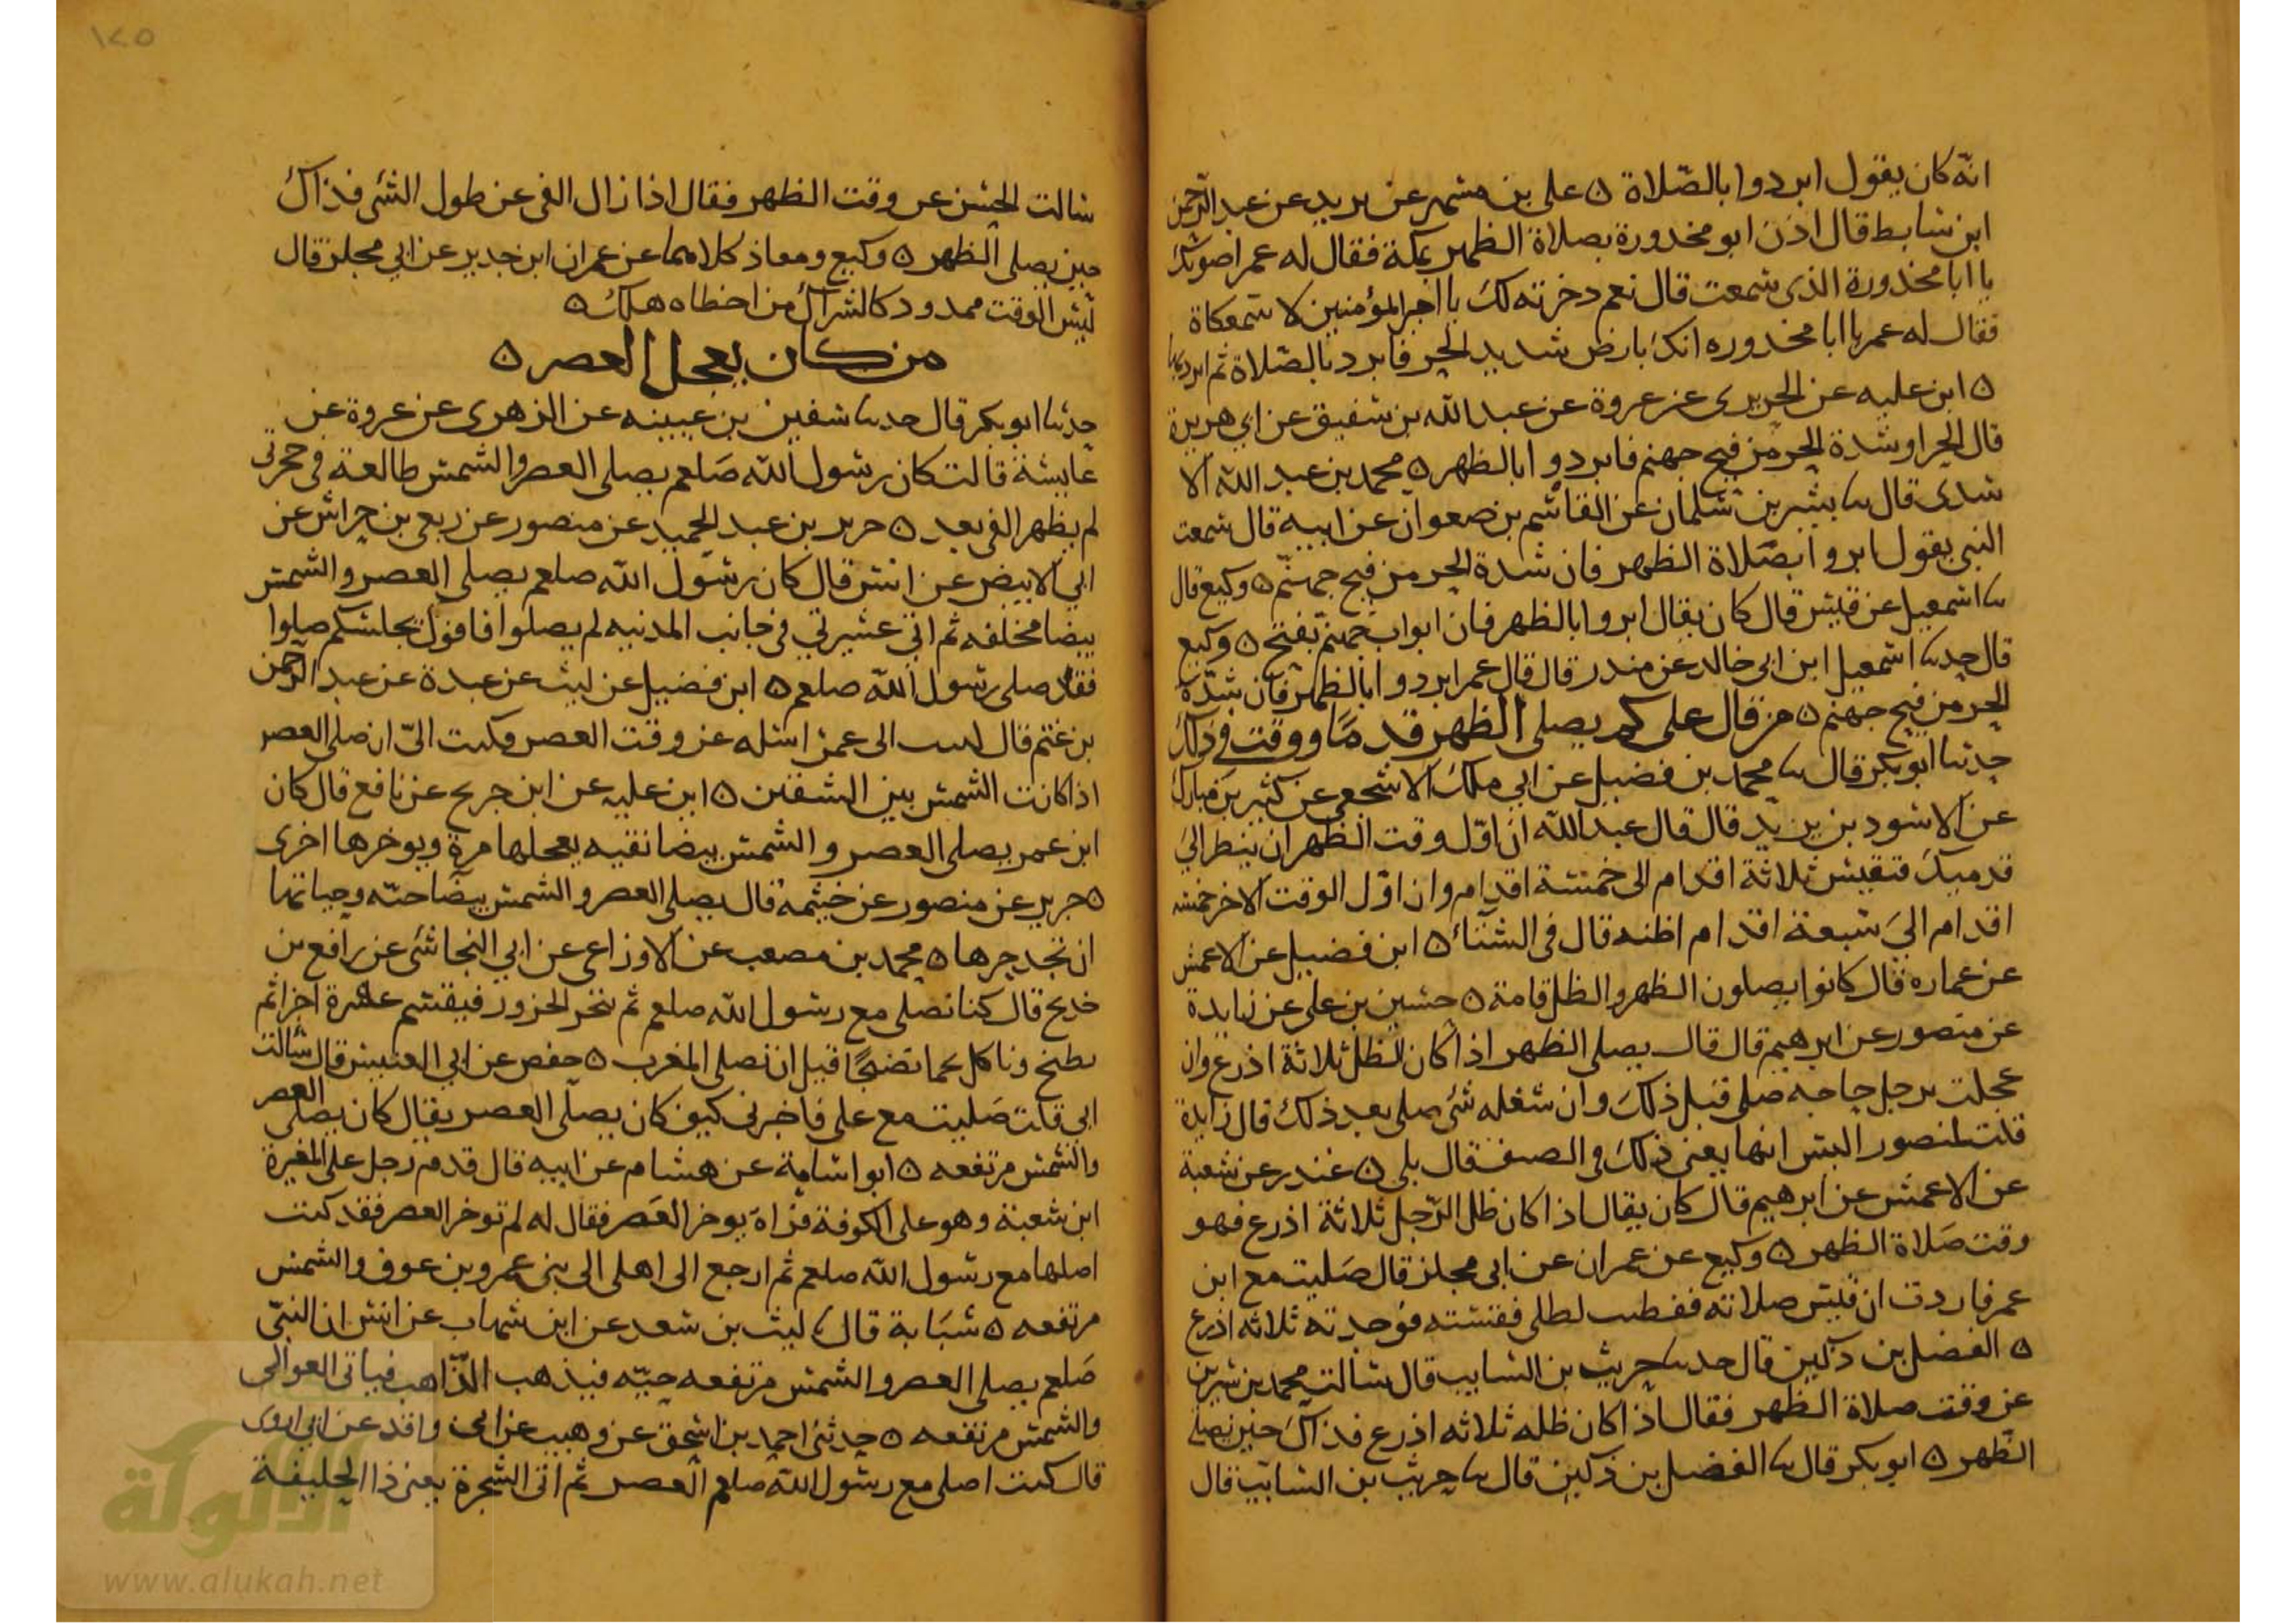 انه كان يقول ابردوا بالصلاة ٥ على بن مسهر عن يزيد عن عبد الرحمن
ابن سابط قال اذن ابو محذورة بصلاة الظهر بمكة فقال له عمر اصوتك
يا ابا محذورة الذى سمعت قال نعم دخرته لك يا امير المؤمنين لاسمعكاة
فقال له عمر يا ابا محذوره انك بارض شديد الحر فابرد بالصلاة ثم ابرد بها
٥ ابن عليه عن الجريرى عن عروة عن عبد الله بن شقيق عن ابي هريرة
قال الحر او شدة الحر من فيح جهنم فابردوا بالظهر ٥ محمد بن عبد الله الا
سدى قال سا بشير بن سلمان عن القاسم بن صفوان عن ابيه قال سمعت
النبي يقول ابروا بصلاة الظهر فان شدة الحر من فيح جهنم ٥ وكيع قال
سا اسمعيل عن قيس قال كان يقال ابروا بالظهر فان ابواب جهنم تفتح ٥ وكيع
قال حدسا اسمعيل ابن ابى خالد عن منذر قال قال عمر ابردوا بالظهر فان شدة
الحر من فيح جهنم ٥ من قال على كم يصلى الظهر قدما ووقت في ذلك
حدثنا ابو بكر قال سا محمد بن فضيل عن ابي ملك الاشجعي عن كثير بن مبارك
عن الاسود بن يزيد قال قال عبد الله ان اول وقت الظهر ان ينظر الى
قدميك فتقيس ثلاثة اقدام الى خمسة اقدام وان اول الوقت الاخر خمسه
اقدام الى سبعة اقدام اظنه قال في الشتاء ٥ ابن فضيل عن الاعمش
عن عماره قال كانوا يصلون الظهر والظل قامة ٥ حسين بن على عن زايدة
عن منصور عن ابرهيم قال قال يصلى الظهر اذا كان الظل ثلاثة اذرع وان
عجلت برجل حاجه صلى قبل ذلك وان شغله شئ صلى بعد ذلك قال زايدة
قلت لمنصور اليس انها يعنى ذلك في الصيف قال بلى ٥ غندر عن شعبة
عن الاعمش عن ابرهيم قال كان يقال اذا كان ظل الرجل ثلاثة اذرع فهو
وقت صلاة الظهر ٥ وكيع عن عمران عن ابى مجلز قال صليت مع ابن
عمر فاردت ان قيس صلاته ففطنت لظلى فقسته فوجدته ثلاثه اذرع
٥ الفضل بن دكين قال حدسا حريث بن السايب قال سالت محمد بن سيرين
عن وقت صلاة الظهر فقال اذا كان ظله ثلاثه اذرع فذاك حين تصلى
الظهر ٥ ابو بكر قال سا الفضل بن دكين قال سا حريث بن السايب قال
سالت الحسن عن وقت الظهر فقال اذا زال الفى عن طول الشى فذاك
حين يصلى الظهر ٥ وكيع ومعاذ كلاهما عن عمران ابن حدير عن ابي مجلز قال
ليس الوقت ممدود كالشراك من اخطاه هلك ٥
من كان يعجل العصر ٥
حدثنا ابو بكر قال حدسا سفين بن عيينه عن الزهرى عن عروة عن
عايشة قالت كان رسول الله صلعم يصلى العصر والشمس طالعة في حجرتى
لم يظهر الفى بعد ٥ جرير بن عبد الحميد عن منصور عن ربعى بن حراش عن
ابي الابيض عن انس قال كان رسول الله صلعم يصلى العصر والشمس
بيضا مخلقه ثم اتى عشيرتي في جانب المدنيه لم يصلوا فاقول مجلسكم صلوا
فقد صلى رسول الله صلعم ٥ ابن فضيل عن ليث عن عبدة عن عبد الرحمن
بن غنم قال كتبت الى عمر اسله عن وقت العصر فكتب الى ان صلى العصر
اذا كانت الشمس بين الشفتين ٥ ابن عليه عن ابن جريج عن نافع قال كان
ابن عمر يصلى العصر والشمس بيضا نقيه يعجلها مرة ويوخرها اخرى
٥ جرير عن منصور عن خيثمه قال يصلى العصر والشمس بيضا حيه وحياتها
ان تجد حرها ٥ محمد بن مصعب عن الاوزاعى عن ابي النجاشى عن رافع بن
خديج قال كنا نصلى مع رسول الله صلعم ثم ننحر الجزور فيقسم عشرة اجزا ثم
نطبخ وناكل لحما نضيجا قبل ان نصلى المغرب ٥ حفص عن ابي العنبس قال سالت
ابي قلت صليت مع على فاخبرنى كيف كان يصلى العصر يقال كان يصلى العصر
والشمس مرتفعه ٥ ابو اسامة عن هشام عن ابيه قال قدم رجل على المغيرة
ابن شعبة وهو على الكوفة فراه يوخر العصر فقال له لم توخر العصر فقد كنت
اصلها مع رسول الله صلعم ثم ارجع الى اهلى الى بنى عمرو بن عوف والشمس
مرتفعه ٥ شبابة قال سا ليث بن سعد عن ابن شهاب عن انس ان النبى
صلعم يصلى العصر والشمس مرتفعه حيه فيذهب الذاهب فياتى العوالى
والشمس مرتفعه ٥ حدثنى احمد بن اسحق عن وهيب عن ابى واقد عن ابي اروى
قال كنت اصلى مع رسول الله صلعم العصر ثم اتى الشجرة يعنى ذا الحليفة
١٢٥
الألوكة
www.alukah.net